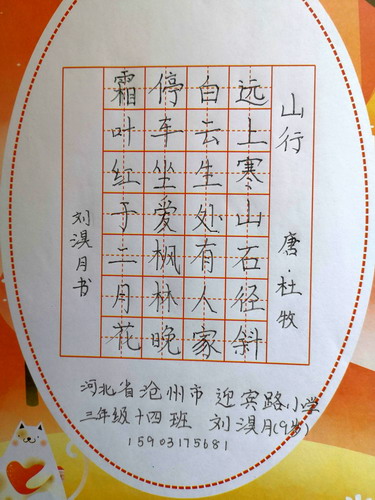 山行
唐·杜牧
远上寒山石径斜
白云生处有人家
停车坐爱枫林晚
霜叶红于二月花
刘淏月书
河北省沧州市 迎宾路小学
三年级十四班 刘淏月(9岁)
15903175681